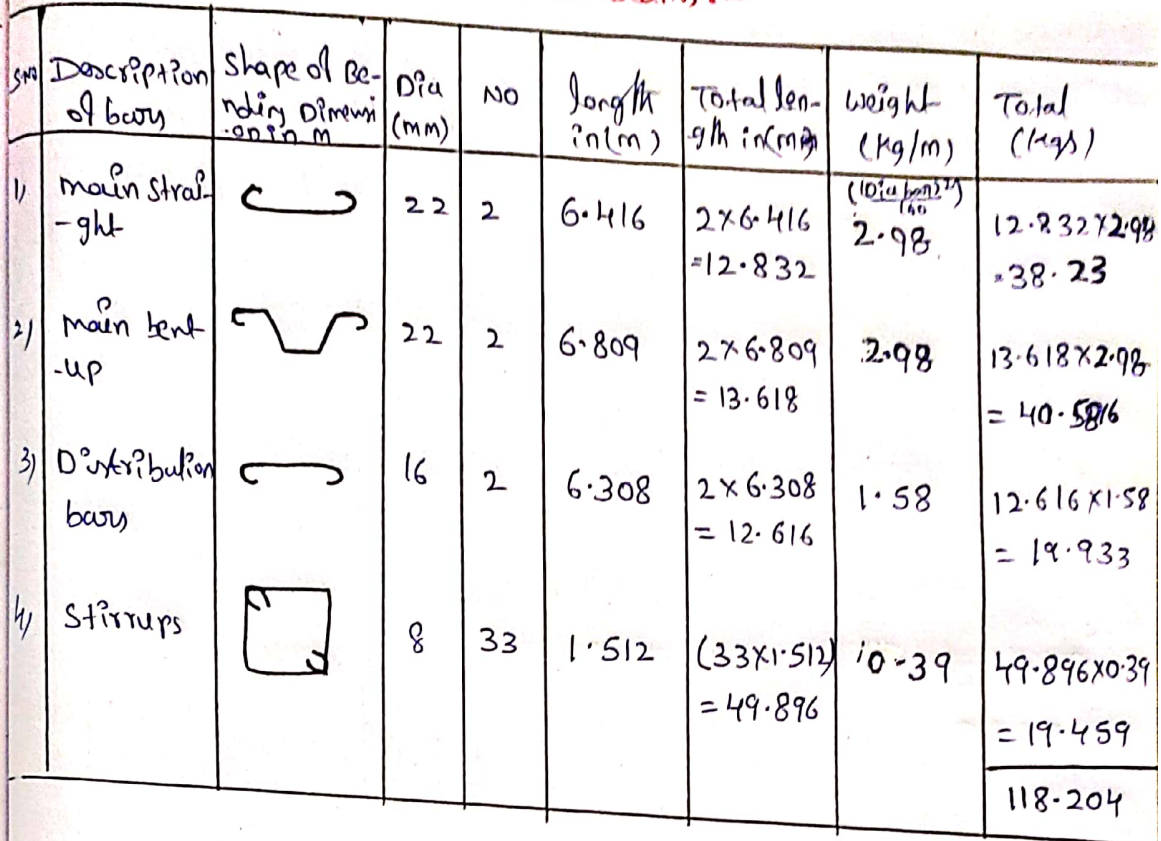 SNO Description of bars Shape of Be-nding Dimensi-on in m Dia (mm) NO length in(m) Total len-gth in(m) weight (kg/m) Total (kgs)
1) main Strai-ght 22 2 6.416 2×6.416 =12.832 2.98 12.832×2.98 =38.23
2) main bent-up 22 2 6.809 2×6.809 = 13.618 2.98 13.618×2.98 = 40.5816
3) Distribution bars 16 2 6.308 2×6.308 = 12.616 1.58 12.616×1.58 = 19.933
4) Stirrups 8 33 1.512 (33×1.512) = 49.896 0.39 49.896×0.39 = 19.459
118.204